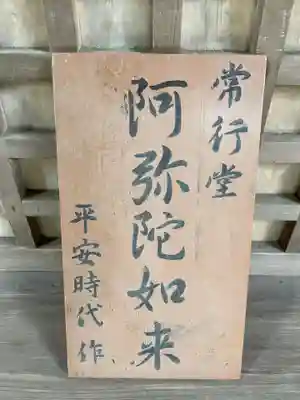 常行堂
阿弥陀如来
平安時代作